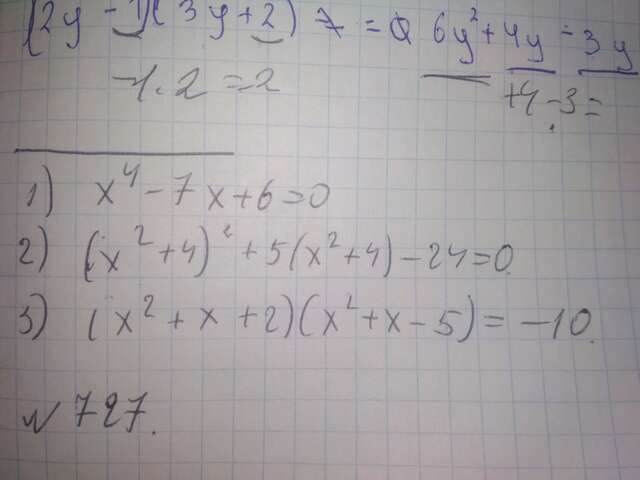 (2y - 1)(3y + 2) = 0 6y² + 4y - 3y
-1·2 = -2 +4 - 3 =
1) x⁴ - 7x + 6 = 0
2) (x² + 4)² + 5(x² + 4) - 24 = 0
3) (x² + x + 2)(x² + x - 5) = -10.
№ 727.